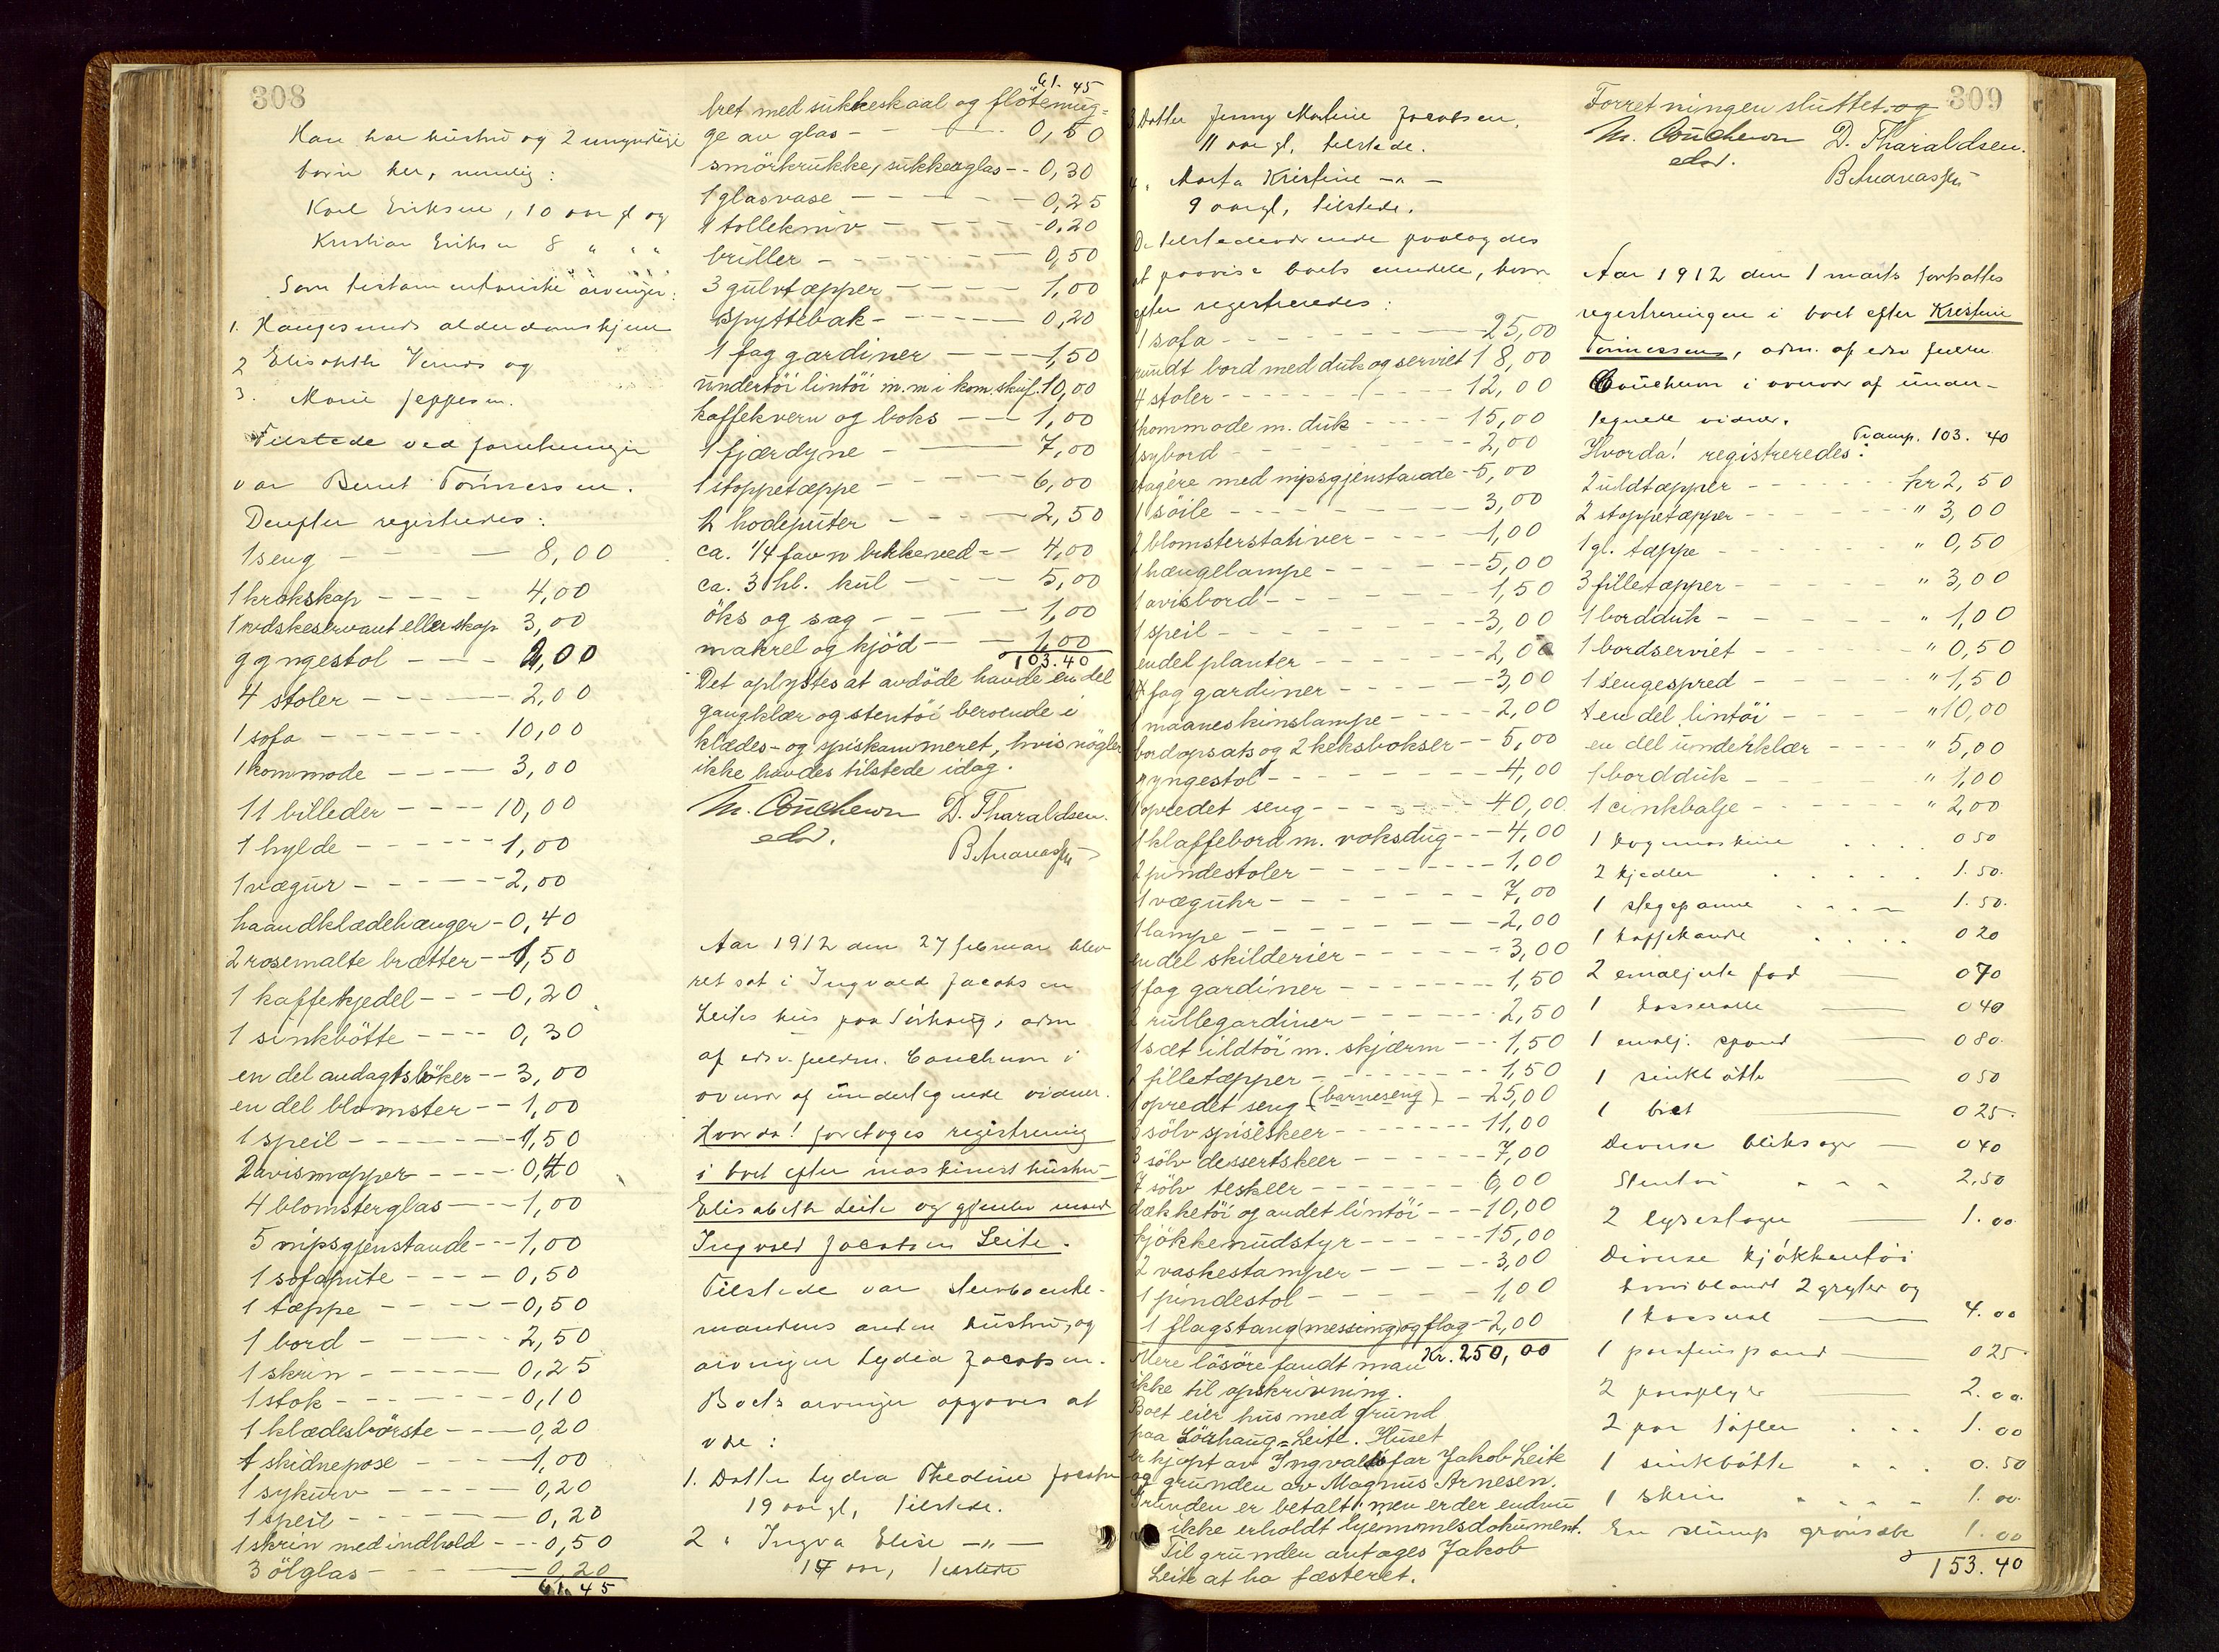 308
Han har hustru og 2 umyndige
barn her, nemlig:
Karl Eriksen, 10 aar gl og
Kristian Eriksen 8 " " "
Som testamentariske arvinger:
1. Haugesunds alderdomshjem
2 Elisabeth Vernes og
3. Marie Jeppesen.
Tilstede ved forretningen
var Bernt Tönnessen.
Derefter registredes:
1 seng - - - 8,00
1 krakskap - - - 4,00
1 vadskeservant eller skap 3,00
gyngestol - - - 2,00
4 stoler - - - 2,00
1 sofa - - - 10,00
1 kommode - - - 3,00
11 billeder - - - 10,00
1 hylde - - - 1,00
1 vægur - - - 2,00
haandklædehænger - 0,40
2 rosemalte brætter - 1,50
1 kaffekjedel - - - 0,20
1 sinkbötte - - - 0,30
en del andagtsböker - - 3,00
en del blomster - - 1,00
1 speil - - - 1,50
2 avismapper - - - 0,40
4 blomsterglas - - - 1,00
5 nipsgjenstande - - - 1,00
1 sofapute - - - 0,50
1 tæppe - - - 0,50
1 bord - - - 2,50
1 skrin - - - 0,25
1 stok - - - 0,10
1 klædesbörste - - - 0,20
1 skidnepose - - - 1,00
1 sykurv - - - 0,20
1 speil - - - 0,20
1 skrin med indhold - - - 0,50
3 ölglas - - - 0,20
61.45
61.45
bret med sukkeskaal og flötemug=
ge av glas - - - 0,50
smörkrukke, sukkerglas - - 0,30
1 glasvase - - - 0,25
1 tollekniv - - - 0,20
briller - - - 0,50
3 gulvtæpper - - - 1,00
Spyttebak - - - 0,20
1 fag gardiner - - - 1,50
undertöi lintöi m.m i kom.skuf. 10,00
kaffekvern og boks - - 1,00
1 fjærdyne - - - 7,00
1 stoppetæppe - - - 6,00
2 hodeputer - - - 2,50
ca. 1/4 favn bikkeved - - 4,00
ca. 3 hl. kul - - - 5,00
öks og sag - - - 1,00
makrel og kjöd - - - 1,00
103.40
Det oplystes at avdöde havde en del
gangklær og stentöi beroende i
klædes- og spiskammeret, hvis nögler
ikke havdes tilstede idag.
M. Coucheron D. Tharaldsen.
edsv. B Andreassen
Aar 1912 den 27 februar blev
ret sat i Ingvald Jacobsen
Leites hus paa Sörhaug, adm
af edsv. fuldm. Coucheron i
overvær af undertegnede vidner.
Hvorda! foretoges registrering
i boet efter maskinist hustru
Elisabeth Leite og gjenlev. mand
Ingvald Jacobsen Leite.
Tilstede var stervboenke-
mandens anden hustru, og
arvingen Lydia Jacobsen.
Boets arvinger opgaves at
være:
1. Datter Lydia Theoline Jacobsen
19 aar gl, tilstede.
2 " Ingva Elise -"-
14 aar, tilstede
309
3 Datter Jenny Martine Jacobsen,
11 aar gl, tilstede.
4. " Marta Kristine -"-
9 aar gl, tilstede.
De tilstedeværende paalagdes
at paavise boets eiendele, hvor
efter registreredes:
1 sofa - - - 25,00
rundt bord med duk og serviet 18,00
4 stoler - - - 12,00
1 kommode m. duk - - - 15,00
1 sybord - - - 2,00
etagére med nipsgjenstande - 5,00
1 söile - - - 3,00
2 blomsterstativer - - - 1,00
1 hængelampe - - - 5,00
1 avisbord - - - 1,50
1 speil - - - 3,00
endel planter - - - 2,00
2 fag gardiner - - - 3,00
1 maaneskinslampe - - - 2,00
bordopsats og 2 keksbokser - - 5,00
gyngestol - - - 4,00
1 opredet seng - - - 40,00
1 klaffebord m. voksdug - - - 4,00
2 pindestoler - - - 1,00
1 væguhr - - - 7,00
1 lampe - - - 2,00
en del skilderier - - - 3,00
1 fag gardiner - - - 1,50
2 rullegardiner - - - 2,50
1 sæt ildtöi m. skjærm - - - 1,50
2 filletæpper - - - 1,50
1 opredet seng (barneseng) - 25,00
3 sölv spiseskeer - - - 11,00
3 sölv dessertskeer - - - 7,00
7 sölv teskeer - - - 6,00
dækketöi og andet lintöi - - - 10,00
kjökkenudstyr - - - 15,00
2 vaskestamper - - - 3,00
1 pindestol - - - 1,00
1 flagstang (messing) og flag - 2,00
Kr. 250,00
Mere lösöre fandt man
ikke til opskrivning.
Boet eier hus med grund
paa Sörhaug-Leite. Huset
er kjöpt av Ingvalds far Jakob Leite
og grunden av Magnus Arnesen.
Grunden er betalt men er der endnu
ikke erholdt hjemmelsdokument.
Til grunden antages Jakob
Leite at ha fæsteret.
Forretningen sluttet og
M. Coucheron D. Tharaldsen.
edsv. B Andreassen
Aar 1912 den 1 marts fortsattes
registreringen i boet efter Kristine
Tönnessen, adm. af edsv fuldm.
Coucheron i overvær af under-
tegnede vidner.
Transp. 103.40
Hvorda! registreredes:
2 uldtæpper - - - kr 2,50
2 stoppetæpper - - - " 3,00
1 gl. tæppe - - - " 0,50
3 filletæpper - - - " 3,00
1 bordduk - - - " 1,00
1 bordserviet - - - " 0,50
1 sengespred - - - " 1,50
en del lintöi - - - " 10,00
en del underklær - - - " 5,00
1 bordduk - - - " 1,00
1 cinkbalje - - - " 2,00
1 kogmaskine . . . . 0 50
2 kjedler . . . . 1.50.
1 stegepanne . . . 1.50.
1 kaffekande . . . . 0 20
2 emaljerte fad - 0 70
1 kasserolle - 0 40
1 emalj. spand - 0 80.
1 sinkbötte - 0 50
1 bret - 0 25.
Diverse bliksager - 0 40
Stentöi " " " 2,50
2 lysestager - 1.00
Diverse kjökkentöi
hvoriblandt 2 gryter og
1 kasserol - 4.00
1 parafinspand - 0 25
2 paraplyer - 2.00
2 par töfler . . . 1.00
1 sinkbötte . . . 0.50
1 skrin . . . . 1.00.
En slump grönsåpe 1.00
153.40